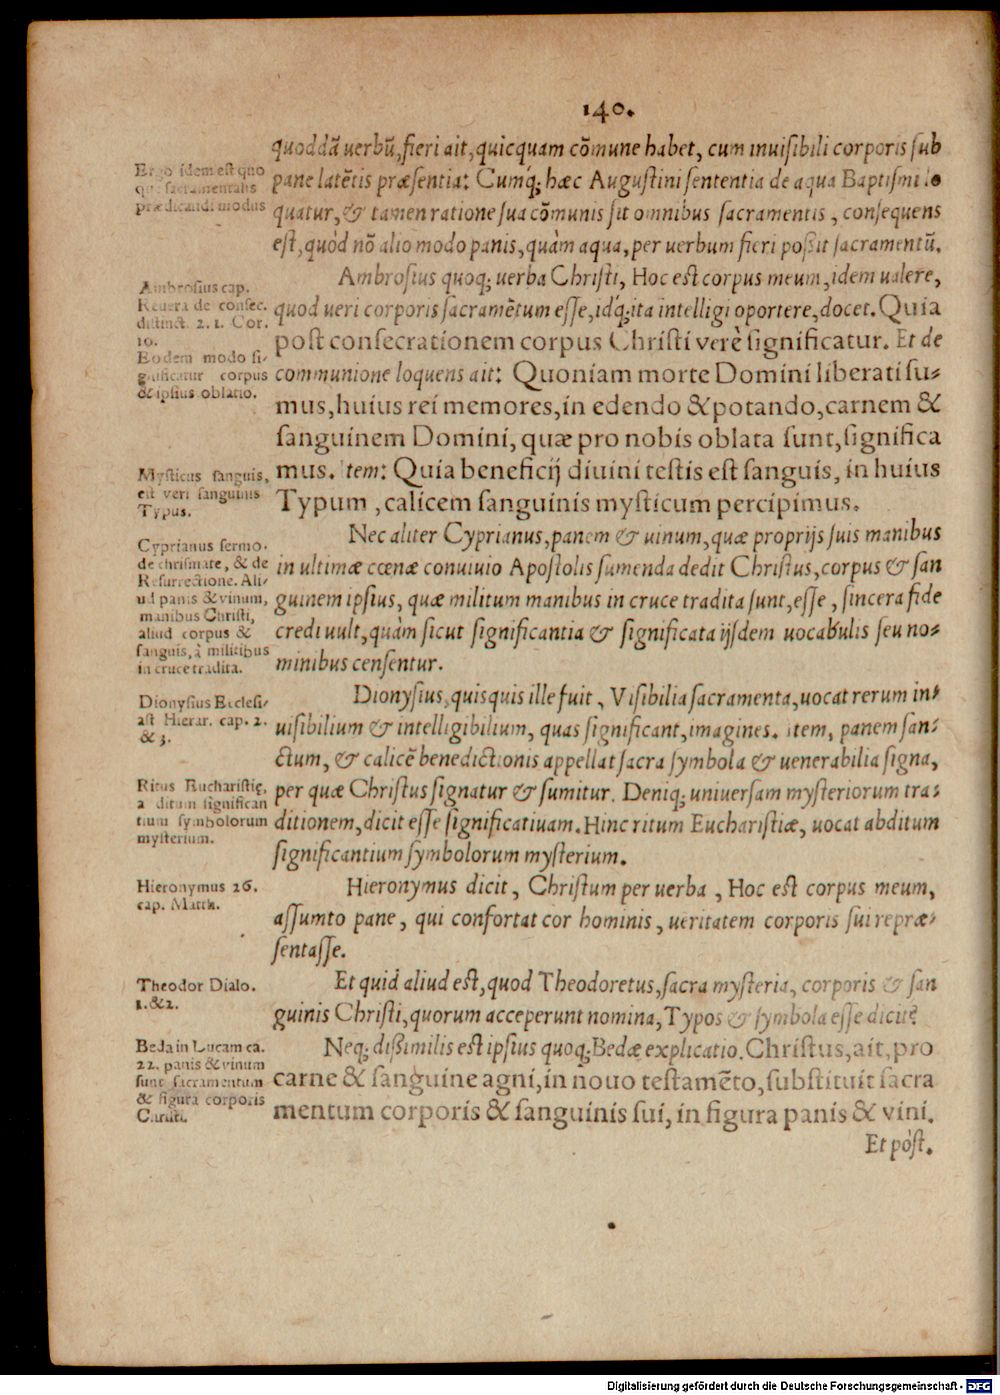 140.
quoddã uerbũ, fieri ait, quicquam cõmune habet, cum inuisibili corporis sub
pane latẽtis præsentia: Cumq́; hæc Augustini sententia de aqua Baptismi lo
quatur, & tamen ratione sua cõmunis sit omnibus sacramentis, consequens
est, quòd nõ alio modo panis, quàm aqua, per uerbum fieri poßit sacramentũ.
Ergo idem est quo
que sacramentalis
prædicandi modus
Ambrosius quoq; uerba Christi, Hoc est corpus meum, idem ualere,
quod ueri corporis sacramẽtum esse, idq́; ita intelligi oportere, docet. Quia
post consecrationem corpus Christi verè significatur. Et de
communione loquens ait: Quoniam morte Domini liberati su-
mus, huius rei memores, in edendo & potando, carnem &
sanguinem Domini, quæ pro nobis oblata sunt, significa
mus. Item: Quia beneficij diuini testis est sanguis, in huius
Typum, calicem sanguinis mysticum percipimus.
Ambrosius cap.
Reuera de consec.
distinct. 2. 1. Cor.
10.
Eodem modo si-
gnificatur corpus
& ipsius oblatio.
Mysticus sanguis,
est veri sanguinis
Typus.
Nec aliter Cyprianus, panem & uinum, quæ proprijs suis manibus
in ultimæ cœnæ conuiuio Apostolis sumenda dedit Christus, corpus & san
guinem ipsius, quæ militum manibus in cruce tradita sunt, esse, sincera fide
credi uult, quàm sicut significantia & significata ijsdem uocabulis seu no-
minibus censentur.
Cyprianus sermo.
de chrismate, & de
Resurrectione. Ali-
ud panis & vinum,
manibus Christi,
aliud corpus &
sanguis, à militibus
in cruce tradita.
Dionysius, quisquis ille fuit, Visibilia sacramenta, uocat rerum in-
uisibilium & intelligibilium, quas significant, imagines. Item, panem san-
ctum, & calicẽ benedictionis appellat sacra symbola & uenerabilia signa,
per quæ Christus signatur & sumitur. Deniq; uniuersam mysteriorum tra-
ditionem, dicit esse significatiuam. Hinc ritum Eucharistiæ, uocat abditum
significantium symbolorum mysterium.
Dionysius Ecclesi-
ast Hierar. cap. 2.
& 3.
Ritus Eucharistię,
abditum significan
tium symbolorum
mysterium.
Hieronymus dicit, Christum per uerba, Hoc est corpus meum,
assumto pane, qui confortat cor hominis, ueritatem corporis sui repræ-
sentasse.
Hieronymus 26.
cap. Matth.
Et quid aliud est, quod Theodoretus, sacra mysteria, corporis & san
guinis Christi, quorum acceperunt nomina, Typos & symbola esse dicit?
Theodor Dialo.
1. & 2.
Neq; dißimilis est ipsius quoq; Bedæ explicatio. Christus, ait, pro
carne & sanguine agni, in nouo testamẽto, substituit sacra
mentum corporis & sanguinis sui, in figura panis & vini.
Beda in Lucam ca.
22. panis & vinum
sunt sacramentum
& figura corporis
Christi.
Et pòst.
Digitalisierung gefördert durch die Deutsche Forschungsgemeinschaft - DFG